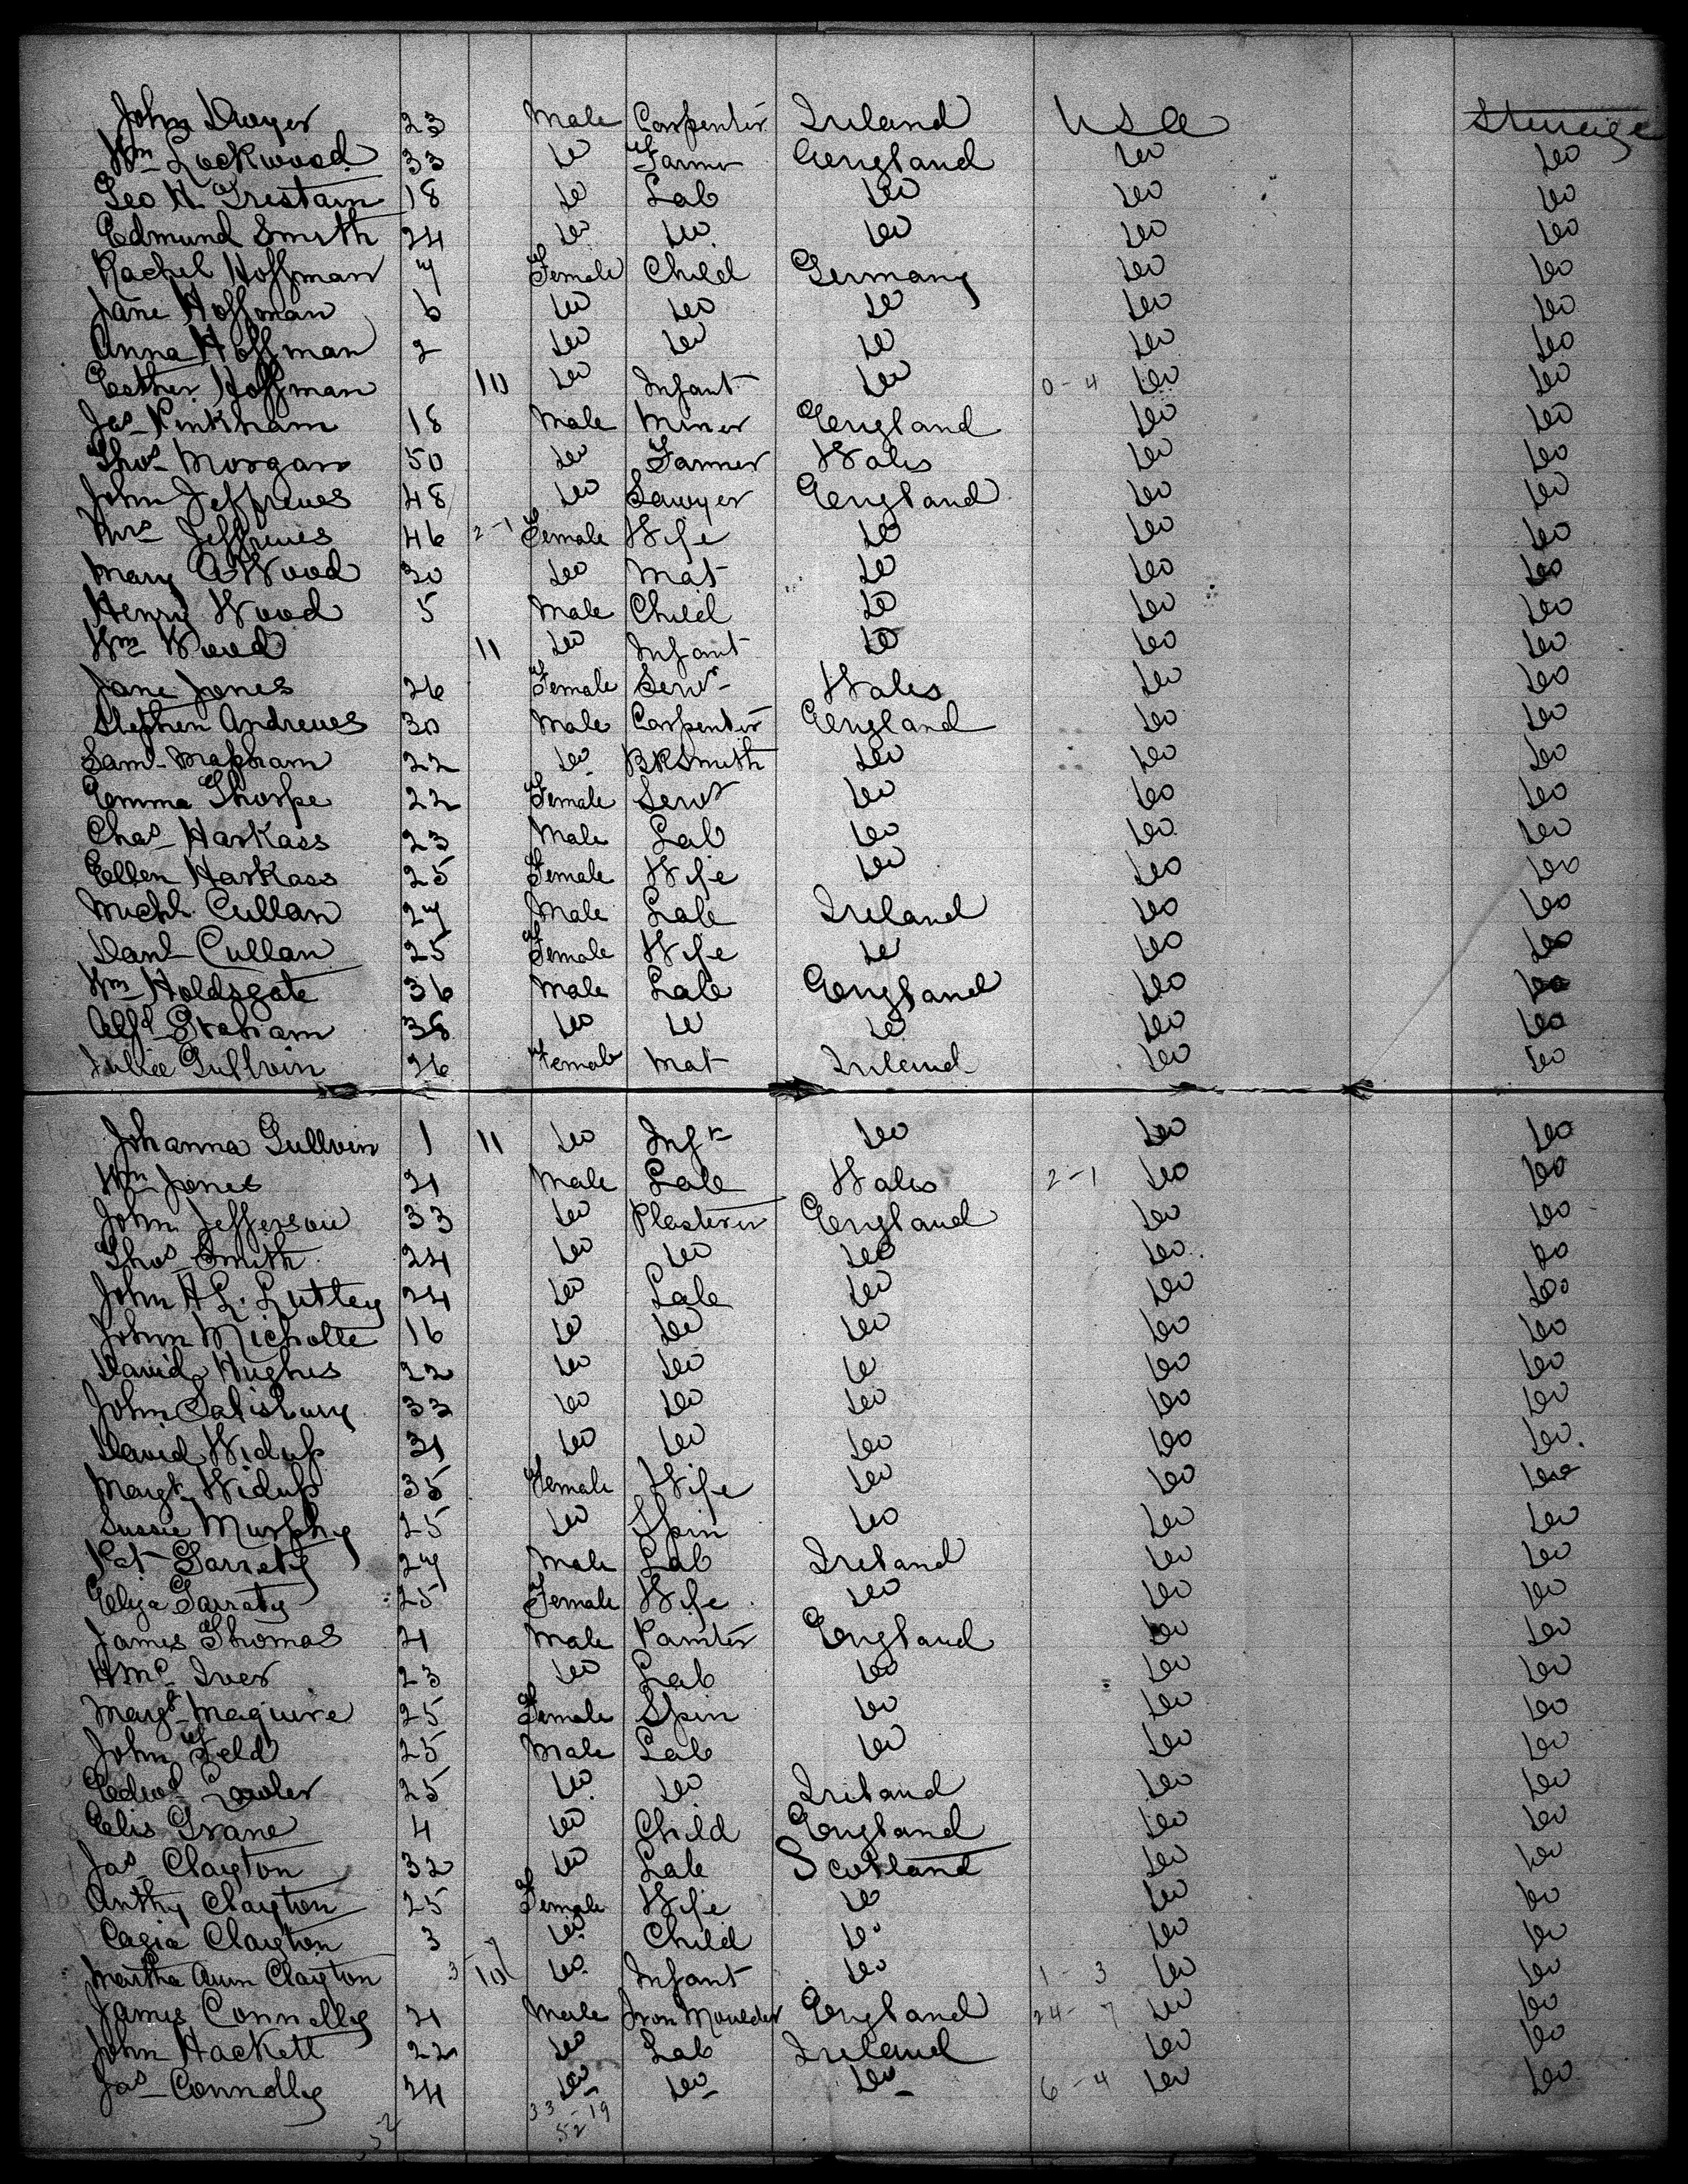 John Dwyer 23 Male Carpenter Ireland USA Steerage
Wm Lockwood 33 Do Farmer England Do Do
Geo H Trestain 18 Do Lab Do Do Do
Edmund Smith 24 Do Do Do Do Do
Rachel Hoffman 7 Female Child Germany Do Do
Jane Hoffman 6 Do Do Do Do Do
Anna Hoffman 2 Do Do Do Do Do
Esther Hoffman 10 Do Infant Do 0-4 Do Do
Jas Pinkham 18 Male Miner England Do Do
Thos Morgan 50 Do Farmer Wales Do Do
John Jeffreues 48 Do Sawyer England Do Do
Mrs Jeffreues 46 2-1 Female Wife Do Do Do
Mary A Wood 30 Do Mat Do Do Do
Henry Wood 5 Male Child Do Do Do
Wm Wood 11 Do Infant Do Do Do
Jane Jones 26 Female Servt Wales Do Do
Stephen Andrewes 30 Male Carpenter England Do Do
Saml Mapham 22 Do BKSmith Do Do Do
Emma Thorpe 22 Female Servt Do Do Do
Chas Harkass 23 Male Lab Do Do Do
Ellen Harkass 25 Female Wife Do Do Do
Michl Cullan 27 Male Lab Ireland Do Do
Danl Cullan 25 Female Wife Do Do Do
Wm Holdsgate 36 Male Lab England Do Do
Alfd Graham 38 Do Do Do Do Do
Julia Gullvin 26 Female Mat Ireland Do Do
Johanna Gullvin 1 11 Do Inft Do Do Do
Wm Jones 21 Male Lab Wales 2-1 Do Do
John Jefferson 33 Do Plasterer England Do Do
Thos Smith 24 Do Do Do Do Do
John H L. Luttey 24 Do Lab Do Do Do
John Micholte 16 Do Do Do Do Do
David Hughes 22 Do Do Do Do Do
John Salisbury 33 Do Do Do Do Do
David Widup 31 Do Do Do Do Do
Margt Widup 35 Female Wife Do Do Do
Sussie Murphy 25 Do Spin Do Do Do
Pat Garraty 27 Male Lab Ireland Do Do
Eliza Garraty 25 Female Wife Do Do Do
James Thomas 21 Male Painter England Do Do
H Mc Iver 23 Do Lab Do Do Do
Margt Maguire 25 Female Spin Do Do Do
John Feld 25 Male Lab Do Do Do
Edwd Lawler 25 Do Do Ireland Do Do
Elis Grane 4 Do Child England Do Do
Jas Clayton 32 Do Lab Scotland Do Do
Anthy Clayton 25 Female Wife Do Do Do
Cagia Clayton 3 Do Child Do Do Do
Martha Ann Clayton 3 10 Do Infant Do 1-3 Do Do
James Connolly 21 Male Iron Moulder England 24-7 Do Do
John Hackett 22 Do Lab Ireland Do Do
Jas Connolly 24 Do Do Do 6-4 Do Do
33-19
52 52